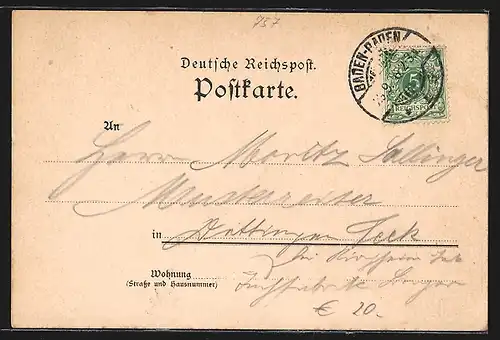 757
Deutsche Reichspost.
Postkarte.
BADEN-BADEN
5
REICHSPOST
An
Herrn Moritz Sallinger
Musterreiser
in Dettingen Teck
bei Kirchheim
Wohnung
(Straße und Hausnummer)
€ 20.-